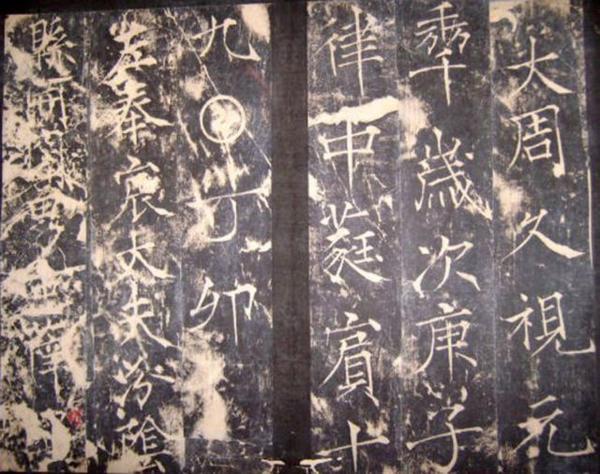 大周久視元
𠡦歲次庚子
律中蕤賓十
九𡆠丁卯
左奉宸大夫汾陰
縣開